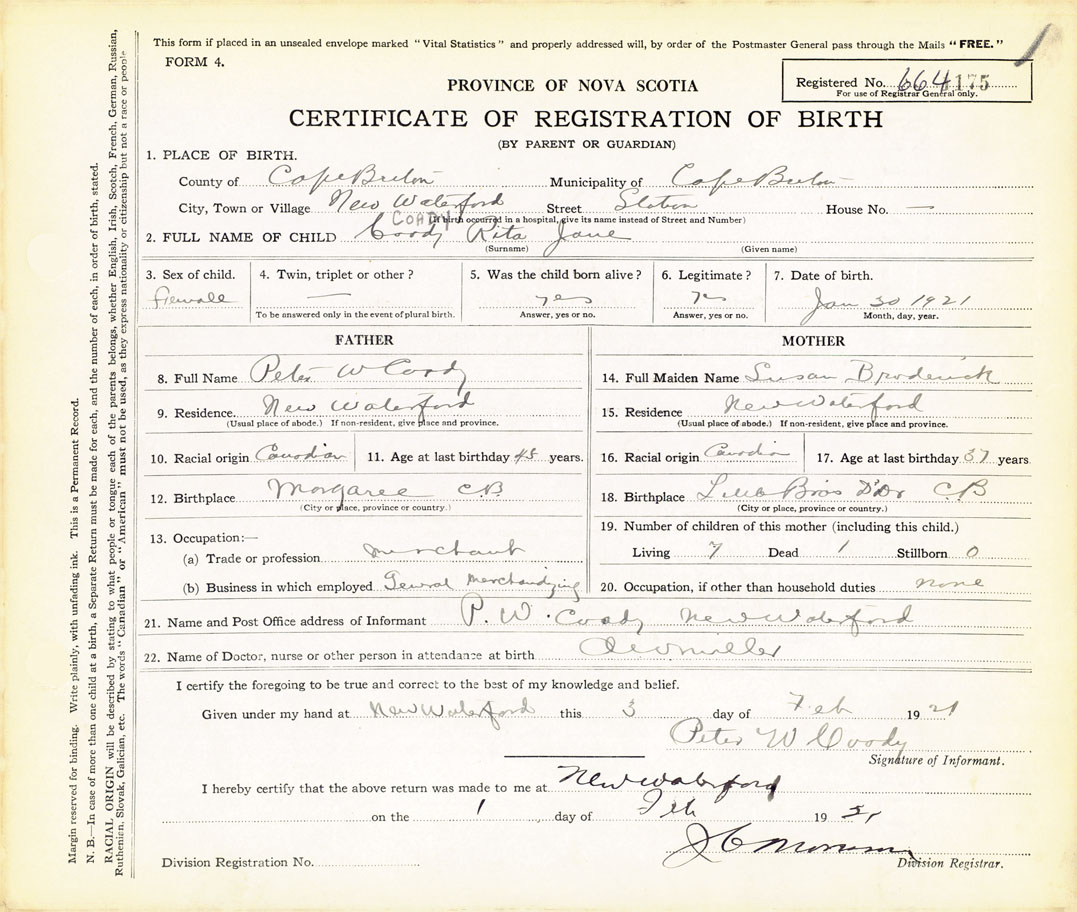 This form if placed in an unsealed envelope marked "Vital Statistics" and properly addressed will, by order of the Postmaster General pass through the Mails "FREE."
FORM 4.
Registered No. 664175
For use of Registrar General only.
PROVINCE OF NOVA SCOTIA
CERTIFICATE OF REGISTRATION OF BIRTH
(BY PARENT OR GUARDIAN)
1. PLACE OF BIRTH.
County of Cape Breton Municipality of Cape Breton
City, Town or Village New Waterford Street Station House No. —
(If birth occurred in a hospital, give its name instead of Street and Number)
COADY
2. FULL NAME OF CHILD Coady Rita Jane
(Surname) (Given name)
3. Sex of child. 4. Twin, triplet or other? 5. Was the child born alive? 6. Legitimate? 7. Date of birth.
Female — yes yes Jan 30 1921
To be answered only in the event of plural birth. Answer, yes or no. Answer, yes or no. Month, day, year.
FATHER MOTHER
8. Full Name Peter W Coady 14. Full Maiden Name Susan Broderick
9. Residence. New Waterford 15. Residence New Waterford
(Usual place of abode.) If non-resident, give place and province. (Usual place of abode.) If non-resident, give place and province.
10. Racial origin Canadian 11. Age at last birthday 45 years. 16. Racial origin Canadian 17. Age at last birthday 37 years
12. Birthplace Margaree C.B. 18. Birthplace Little Bras D'Or C B
(City or place, province or country.) (City or place, province or country.)
13. Occupation:— 19. Number of children of this mother (including this child.)
(a) Trade or profession merchant Living 7 Dead 1 Stillborn 0
(b) Business in which employed General Merchandizing 20. Occupation, if other than household duties none
21. Name and Post Office address of Informant P. W. Coady New Waterford
22. Name of Doctor, nurse or other person in attendance at birth
I certify the foregoing to be true and correct to the best of my knowledge and belief.
Given under my hand at New Waterford this 3 day of Feb 1921
Peter W Coady
Signature of Informant.
I hereby certify that the above return was made to me at New Waterford
on the day of Feb 19
Division Registration No. Division Registrar.
Margin reserved for binding. Write plainly, with unfading ink. This is a Permanent Record.
N. B.—In case of more than one child at a birth, a Separate Return must be made for each, and the number of each, in order of birth, stated.
RACIAL ORIGIN will be described by stating to what people or tongue each of the parents belongs, whether English, Irish, Scotch, French, German, Russian,
Ruthenian, Slovak, Galician, etc. The words "Canadian" or "American" must not be used, as they express nationality or citizenship but not a race or people